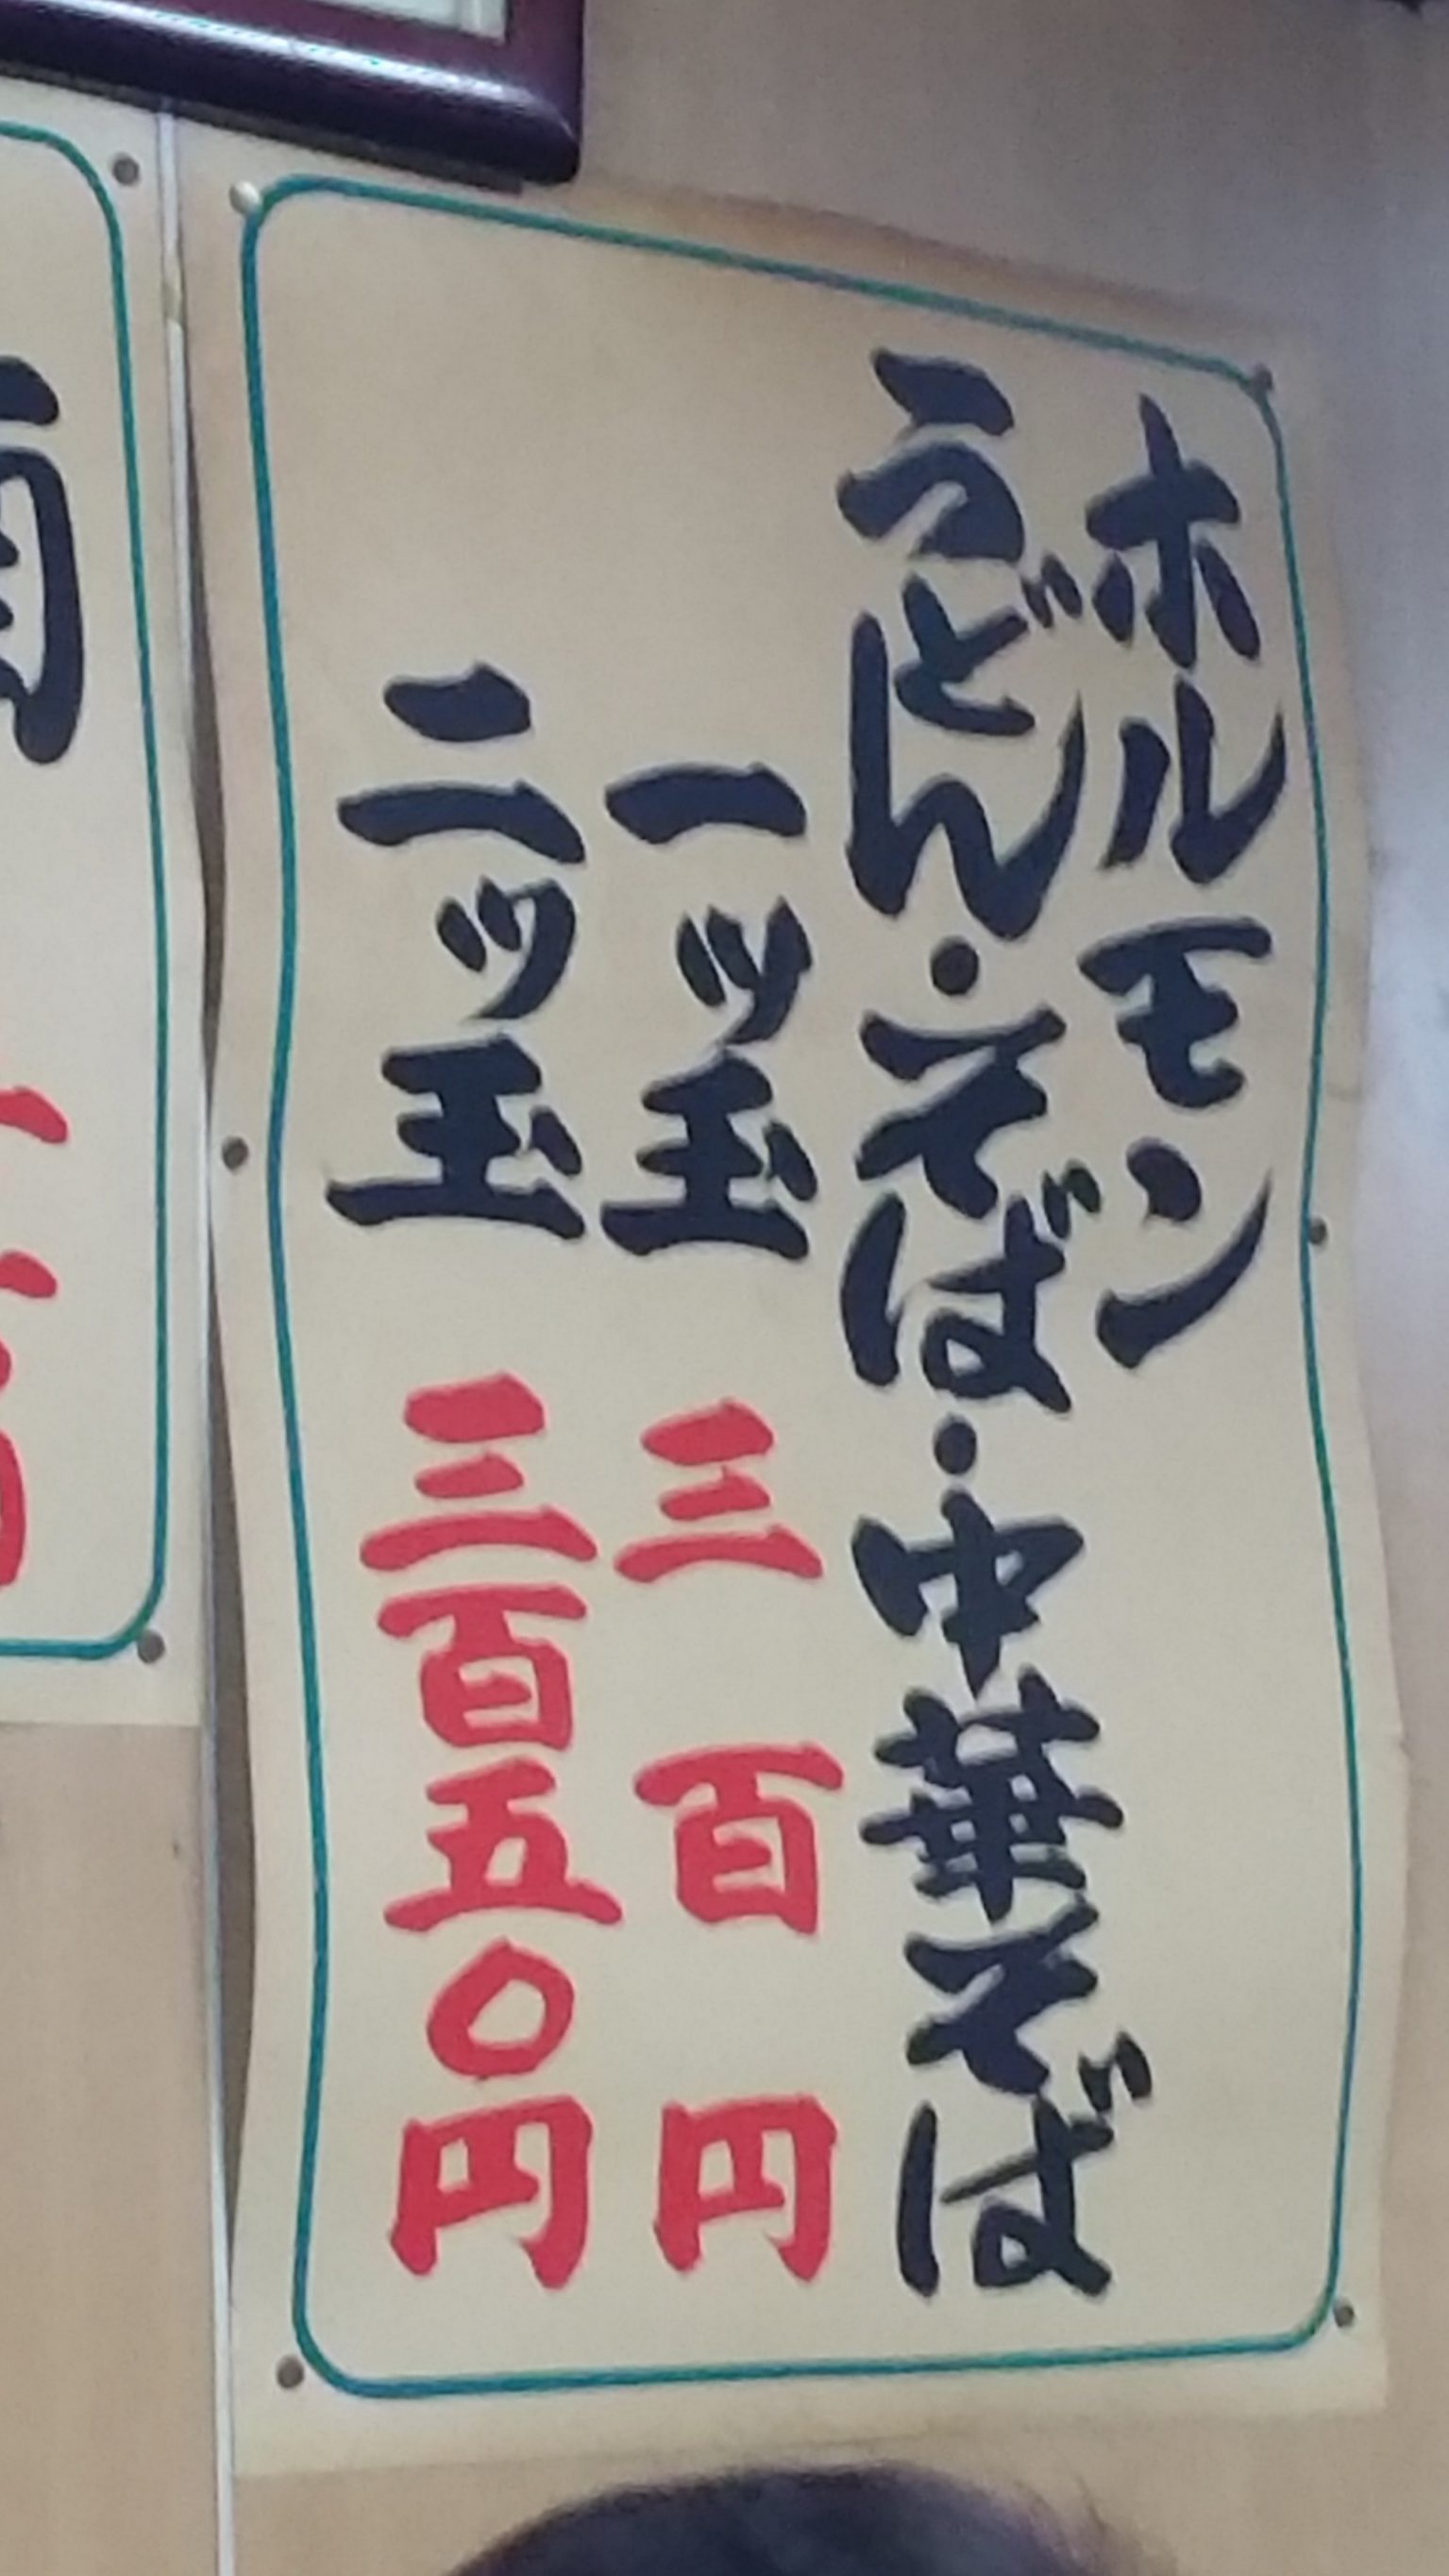 ホルモン
うどん・そば・中華そば
一ッ玉 三百円
二ッ玉 三百五〇円